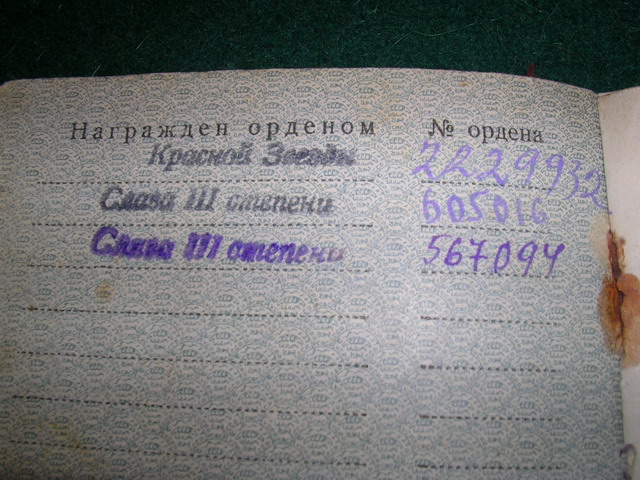 Награжден орденом № ордена
Красной Звезды 2229932
Слава III степени 605016
Слава III степени 567094